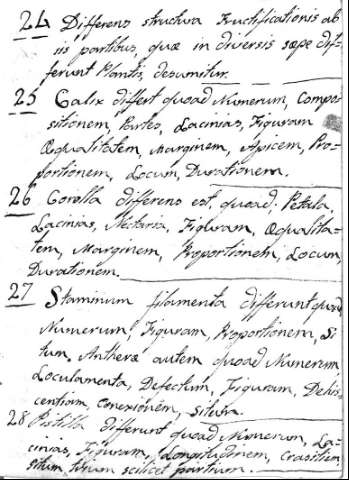 24 Differens structura Fructificationis ab
iis partibus, quæ in diversis sæpe dif-
ferunt Plantis, desumitur.
25 Calix differt quoad Numerum, Compo-
sitionem, Partes, Lacinias, Figuram
Æqualitatem, Marginem, Apicem, Pro-
portionem, Locum, Durationem.
26 Corolla differens est quoad; Petala,
Lacinias, Nectaria, Figuram, Æqualita-
tem, Marginem, Proportionem, Locum,
Durationem.
27 Staminum filamenta differunt quoad
Numerum, Figuram, Proportionem, Si
tum, Antheræ autem quoad Numerum
Loculamenta, Defectum, Figuram, Dehis
centiam, Conexionem, Situm.
28 Pistilla differunt quoad Numerum, La-
cinias, Figuram, Longitudinem, Crassitiem,
situm trium scilicet partium.